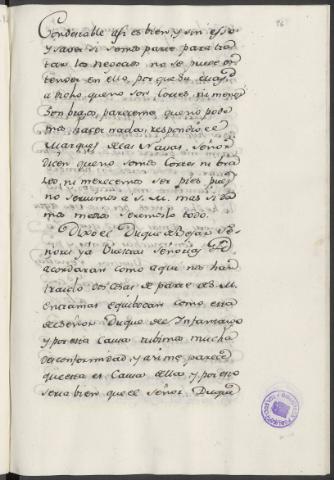 96
Condenable así es bien, y sin esso
y saver si somos parte para tra
tar los neocios no se puede en
tender en ello, porque su Magd
a dicho que no son Cortes, ni menos
son brazo, pareceme que no pode
mos hacer nada, respondio el
Marques de las Navas, Señor
dicen que no somos Cortes ni bra
zo, ni merecemos ser pies, pues
no servimos a S. M. mas si da
mas seremoslo todo.
Dixo el Duque de Bejar, Se
ñores ya Vuestras Señorias
acordaran como aqui nos han
traido dos cosas de parte de S. M.
entrambas equibocan como esta
de el Señor Duque del Infantazgo
y por esta Causa tubimos mucha
desconformidad, y a mi me parece
que esta es Causa della, y por esto
seria bien que el Señor Duque